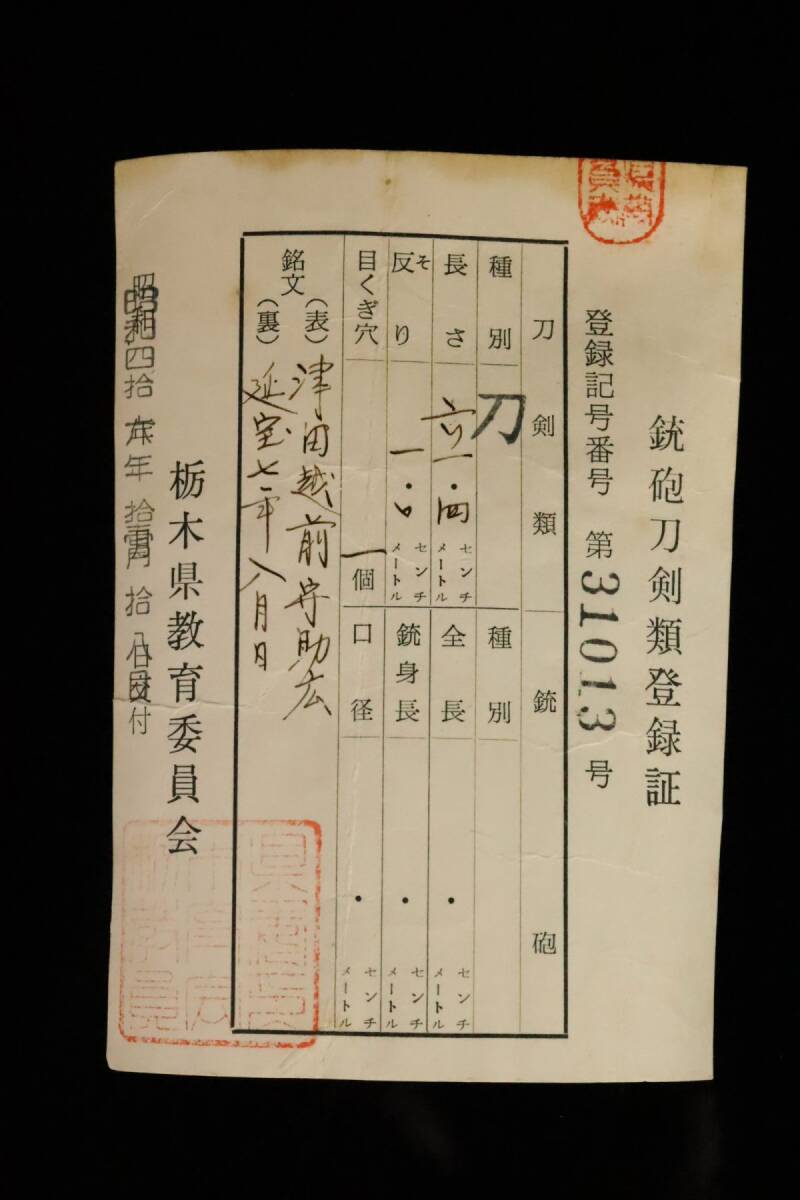 銃砲刀剣類登録証
登録記号番号 第31013号
刀剣類
種別 刀
長さ 六一・四 センチメートル
反り そ 一・〇 センチメートル
目くぎ穴 一個
銘文
(表) 津田越前守助広
(裏) 延宝七年八月日
銃砲
種別
全長 ・ センチメートル
銃身長 ・ センチメートル
口径 ・ センチメートル
昭和四拾 年 拾 月 拾 日交付
栃木県教育委員会